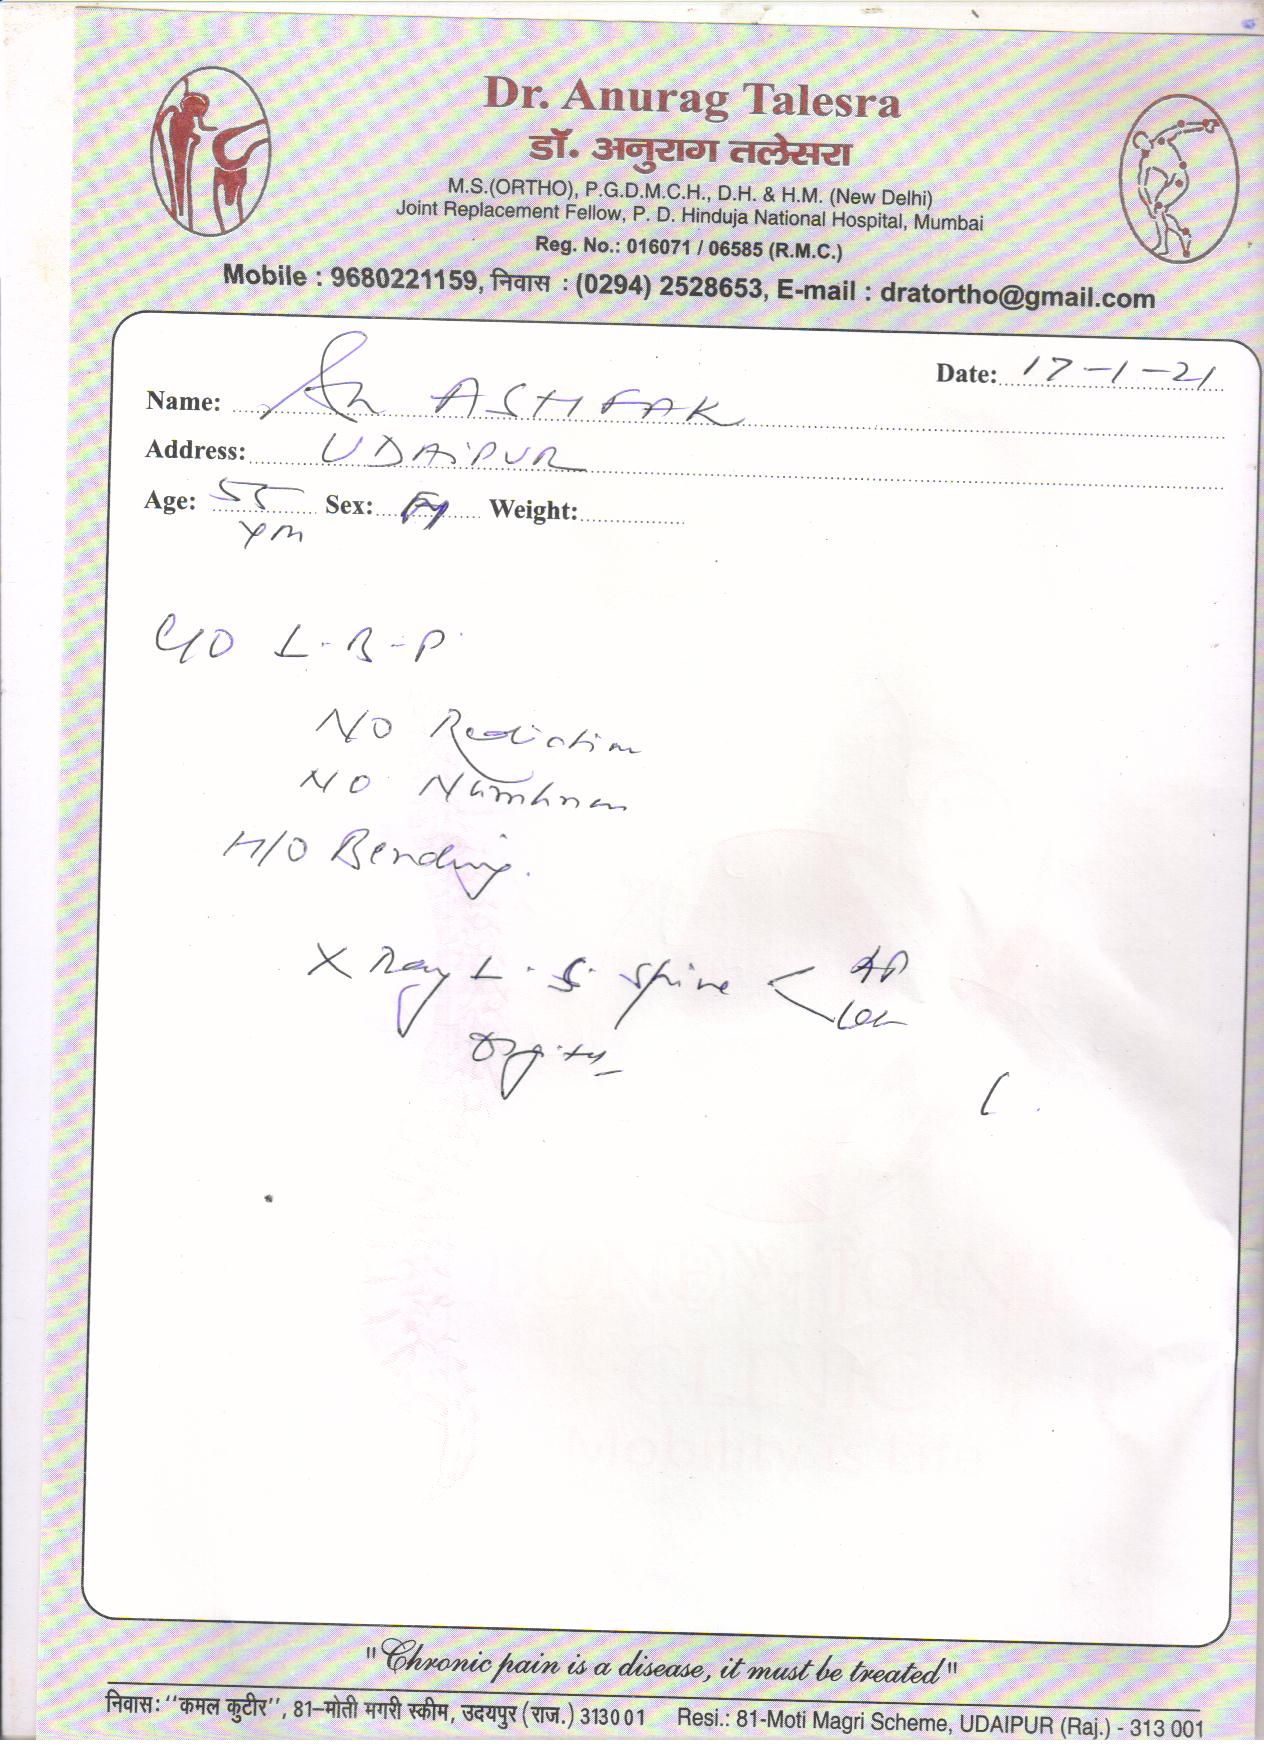 Dr. Anurag Talesra
डॉ. अनुराग तलेसरा
M.S.(ORTHO), P.G.D.M.C.H., D.H. & H.M. (New Delhi)
Joint Replacement Fellow, P. D. Hinduja National Hospital, Mumbai
Reg. No.: 016071 / 06585 (R.M.C.)
Mobile : 9680221159, निवास : (0294) 2528653, E-mail : dratortho@gmail.com
Date: 17-1-21
Name: ASHFAK
Address: UDAIPUR
Age: 55 Sex: Weight:
C/O L-B-P
NO Radiation
NO Numbness
H/O Bending.
X Ray L.S. Spine < AP
Lat
"Chronic pain is a disease, it must be treated"
निवास: ‘‘कमल कुटीर’’, 81–मोती मगरी स्कीम, उदयपुर (राज.) 313001 Resi.: 81-Moti Magri Scheme, UDAIPUR (Raj.) - 313 001